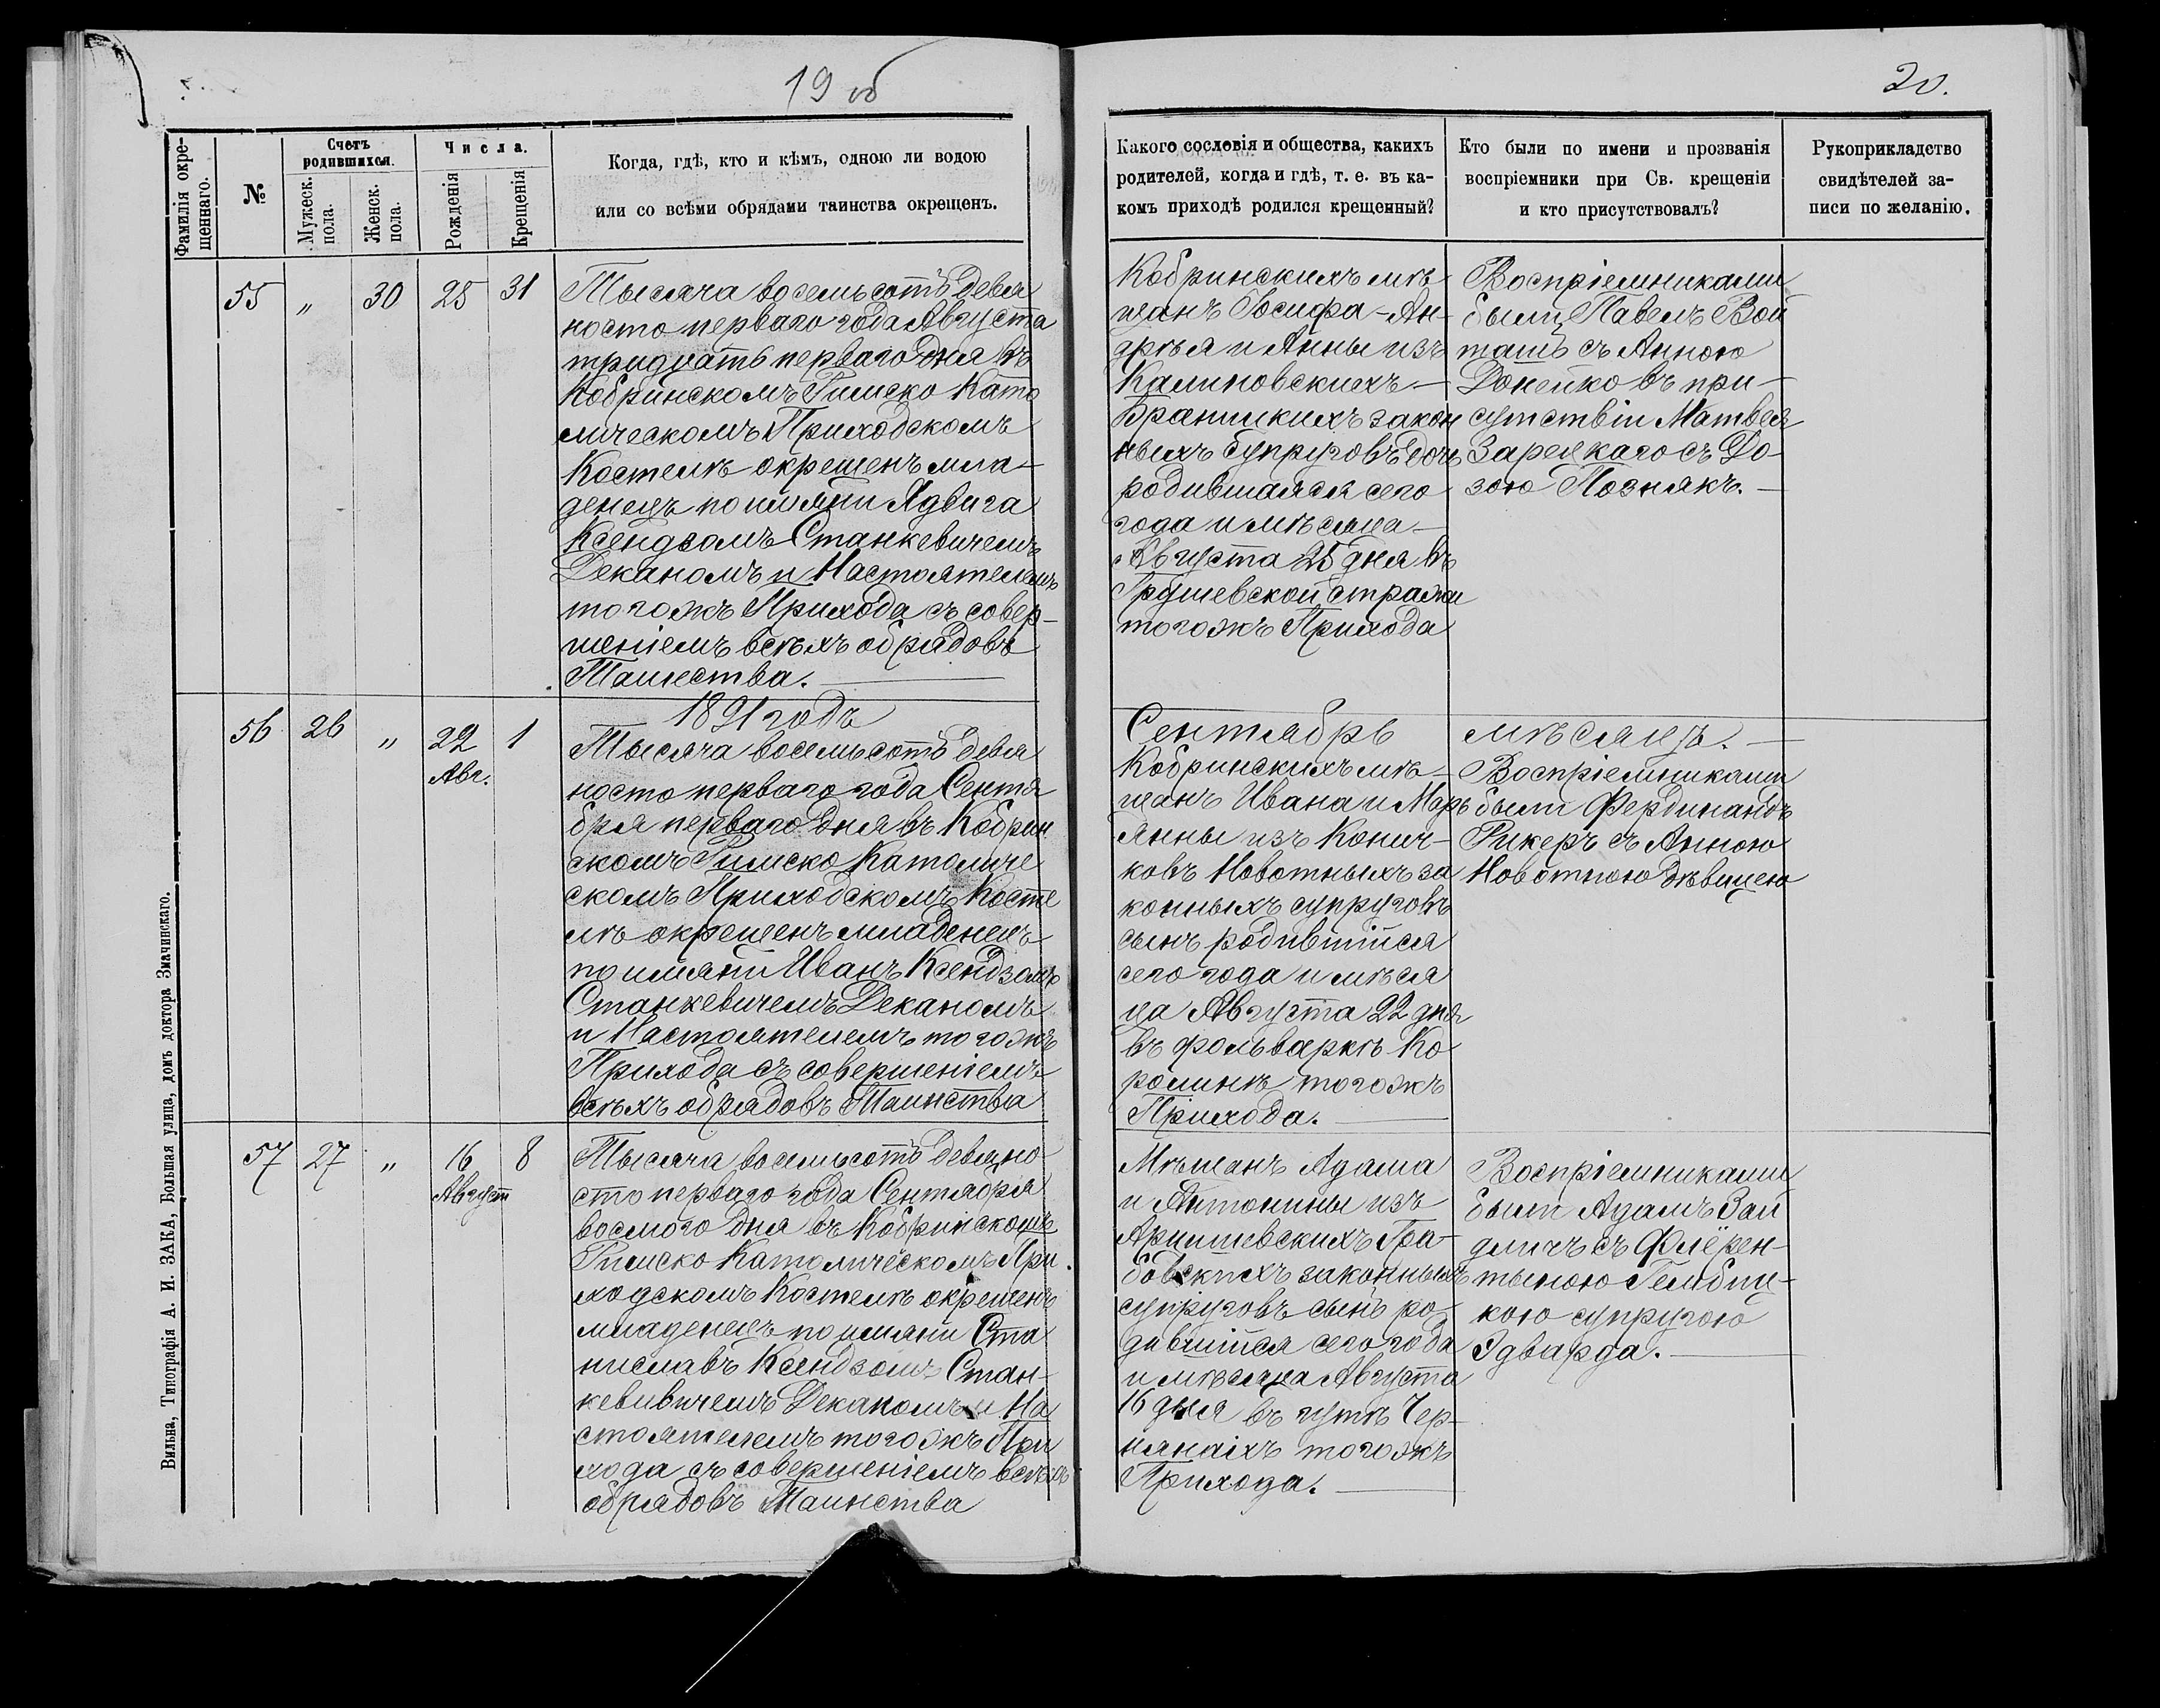 19 об
20.
Фамилія окрещеннаго.
№
Счетъ родившихся.
Мужеск. пола.
Женск. пола.
Числа.
Рожденія
Крещенія
Когда, гдѣ, кто и кѣмъ, одною ли водою
или со всѣми обрядами таинства окрещенъ.
Какого сословія и общества, какихъ
родителей, когда и гдѣ, т. е. въ ка-
комъ приходѣ родился крещенный?
Кто были по имени и прозванія
воспріемники при Св. крещеніи
и кто присутствовалъ?
Рукоприкладство
свидѣтелей за-
писи по желанію.
55 " 30 25 31
Тысяча восемьсотъ девя
носто перваго года Августа
тридцать перваго дня въ
Кобринскомъ Римско Като
лическомъ Приходскомъ
Костелѣ окрещенъ мла-
денецъ по имяни Ядвига
Ксендзомъ Станкевичемъ
Деканомъ и Настоятелемъ
тогожъ Прихода съ совер-
шеніемъ всѣхъ обрядовъ
Таинства.
Кобринскихъ мѣ-
щанъ Іосифа-Ан-
дрѣя и Анны изъ
Калиновскихъ-
законныхъ супруговъ дочь
родившаяся сего
года и мѣсяца-
Августа 25 дня въ
Грушевской стражи
тогожъ Прихода
Воспріемниками
были Павелъ Вой
ташъ съ Анною
Донейко въ при-
сутствіи Матвея
Зарецкаго съ Ро-
зою Познякъ.
1891 годъ
Сентябрь мѣсяцъ.
56 26 " 22 1
Авг.
Тысяча восемьсотъ девя
носто перваго года Сентя
бря перваго дня въ Кобрин
скомъ Римско Католиче
скомъ Приходскомъ Косте
лѣ окрещенъ младенецъ
по имяни Иванъ Ксендзомъ
Станкевичемъ Деканомъ
и Настоятелемъ тогожъ
Прихода съ совершеніемъ
всѣхъ обрядовъ Таинства
Кобринскихъ мѣ-
щанъ Ивана и Марь
янны изъ Конич-
ковъ Новотныхъ за
конныхъ супруговъ
сынъ родившійся
сего года и мѣся
ца Августа 22 дня
въ фольваркѣ Ко
ролинѣ тогожъ
Прихода.
Воспріемниками
были Фердинандъ
Рикеръ съ Анною
Новотною дѣвицею
57 27 " 16 8
Август
Тысяча восемьсотъ девяно
сто перваго года Сентября
восмого дня въ Кобринскомъ
Римско Католическомъ При
ходскомъ Костелѣ окрещенъ
младенецъ по имяни Ста
ниславъ Ксендзомъ Стан-
кевивичемъ Деканомъ и На
стоятелемъ тогожъ При
хода съ совершеніемъ всѣхъ
обрядовъ Таинства
Мѣщанъ Адама
и Антонины изъ
Аришевскихъ Гра-
бовскихъ законныхъ
супруговъ сынъ ро-
дившійся сего года
и мѣсяца Августа
16 дня въ гутѣ Чер-
нянаіхъ тогожъ
Прихода.
Воспріемниками
были Адамъ Зай
дличъ съ Флёрен-
тыною Гембиц-
кою супругою
Эдварда.
Вильна, Типографія А. И. ЗАКА, Большая улица, домъ доктора Змачинскаго.